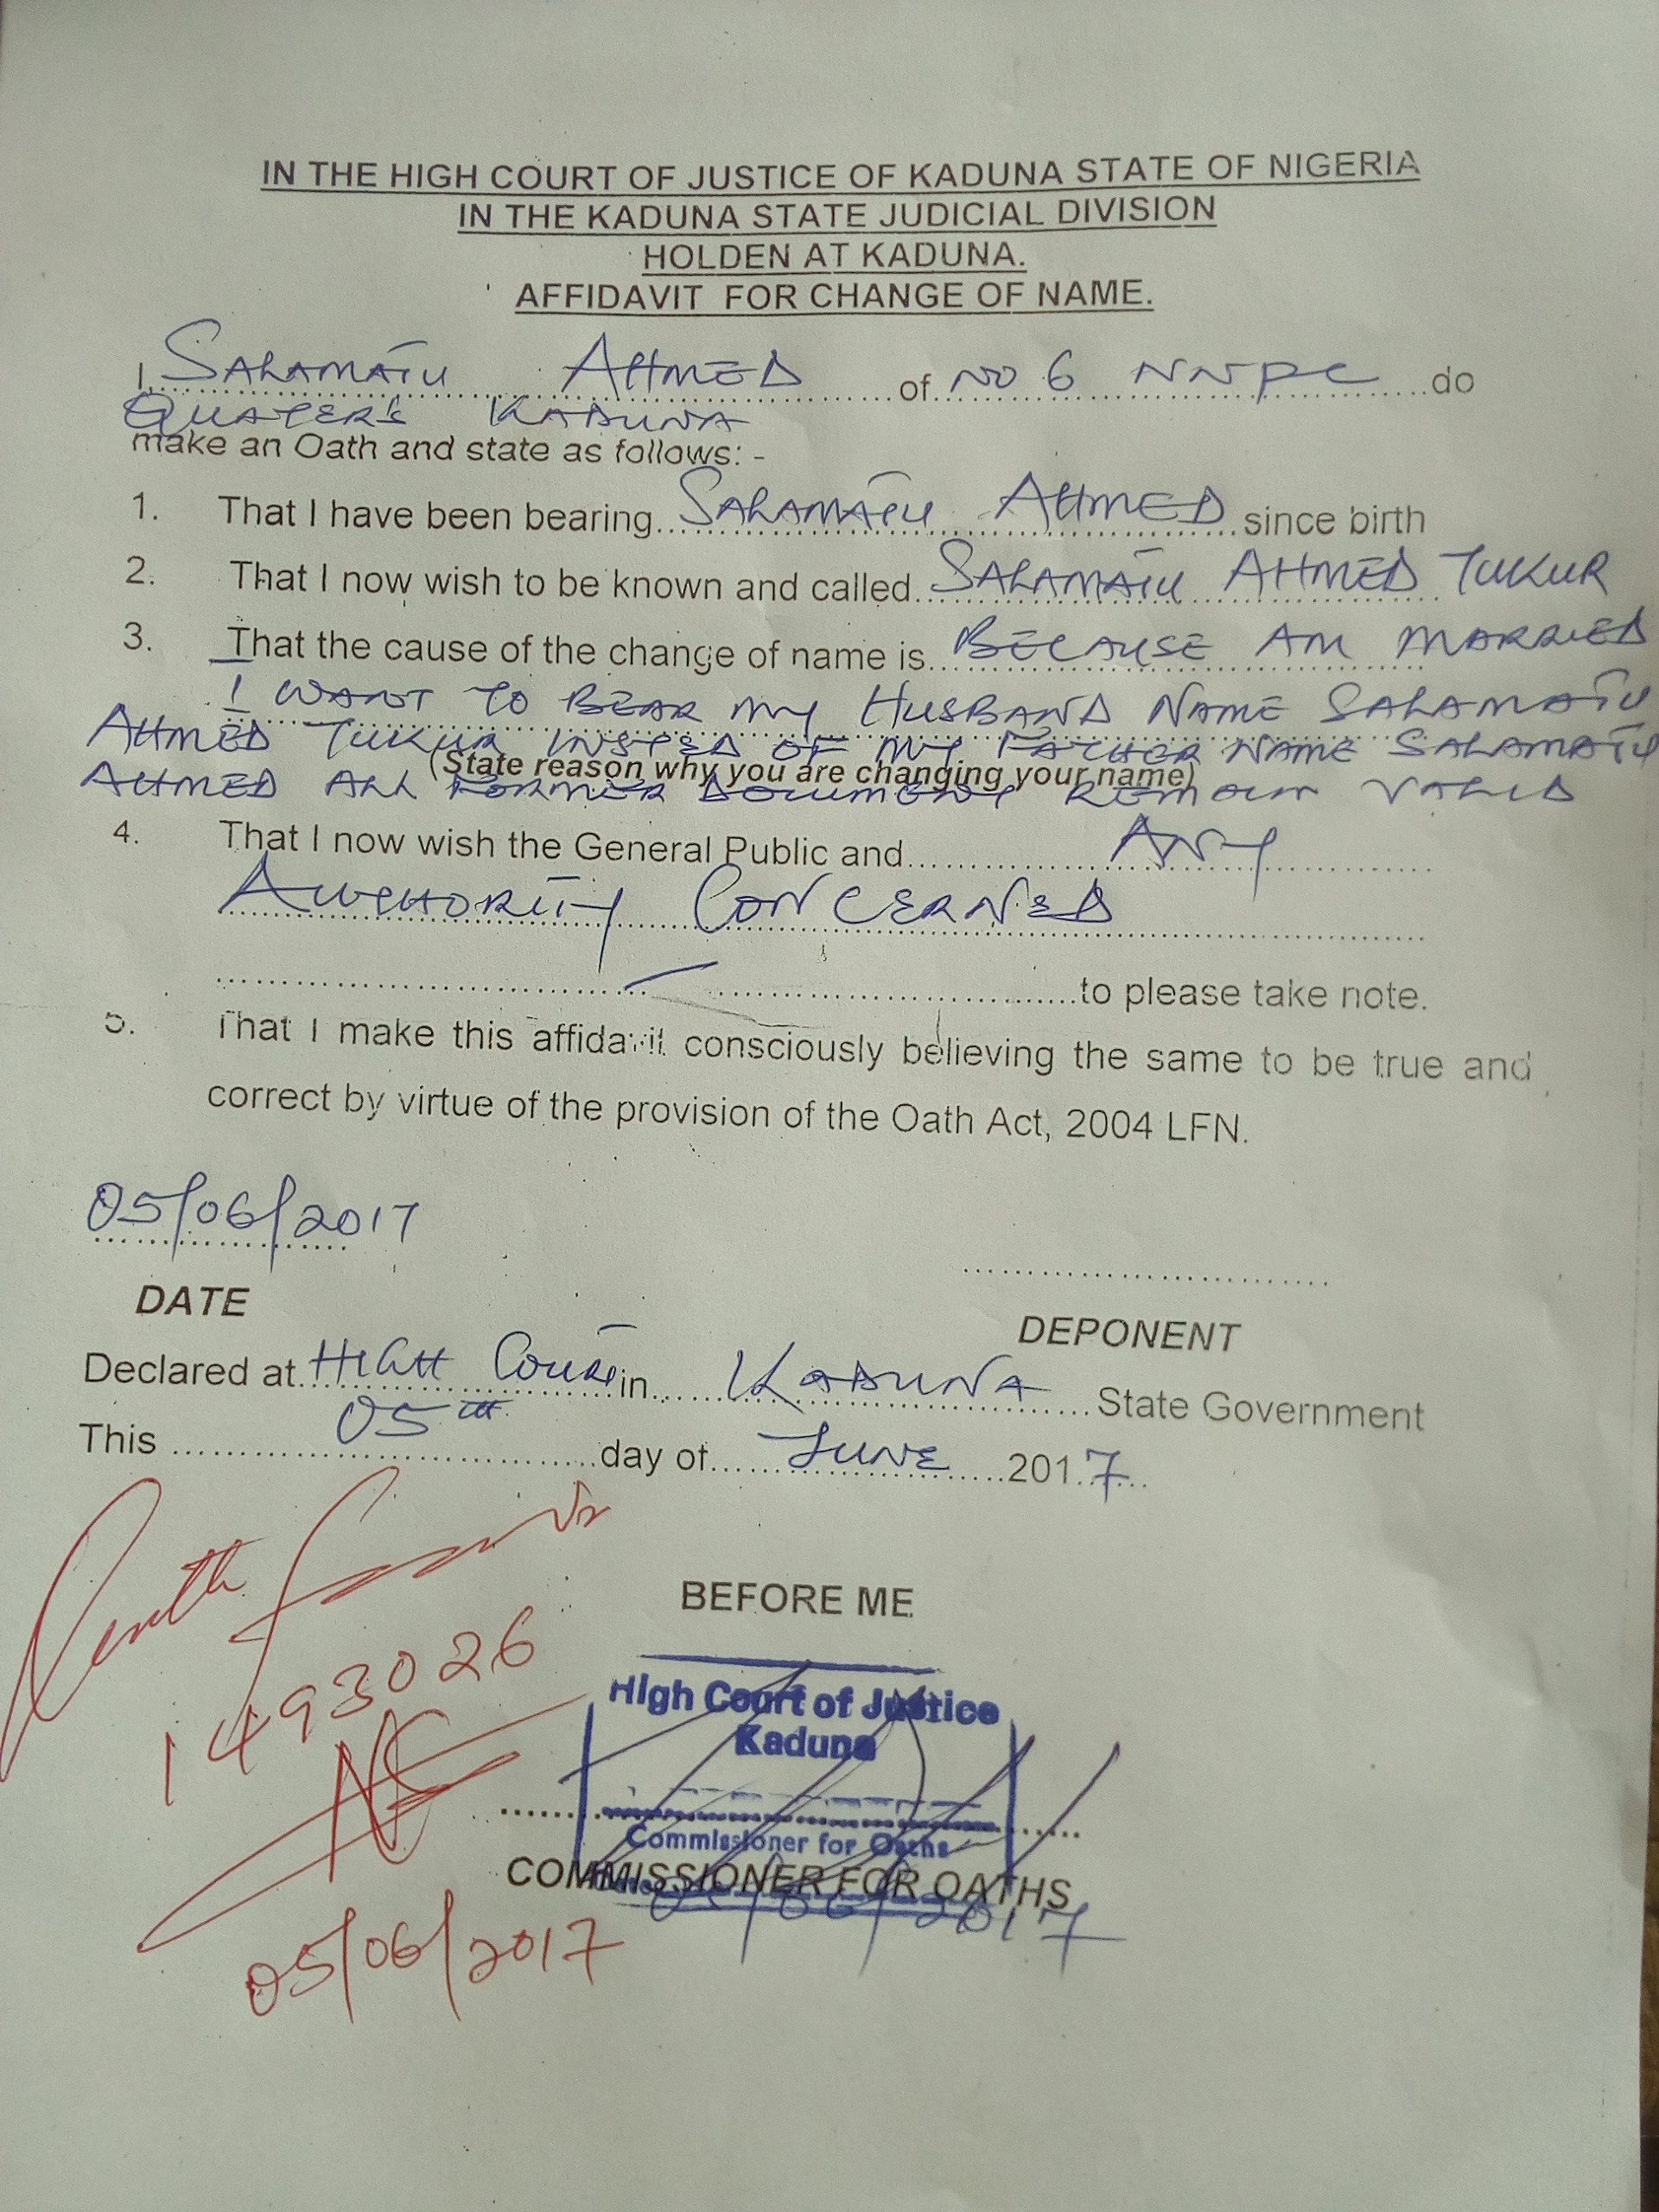 IN THE HIGH COURT OF JUSTICE OF KADUNA STATE OF NIGERIA
IN THE KADUNA STATE JUDICIAL DIVISION
HOLDEN AT KADUNA.
AFFIDAVIT FOR CHANGE OF NAME.
I, SALAMATU AHMED of NO 6 NNPC do
QUATER'S KADUNA
make an Oath and state as follows: -
1. That I have been bearing SALAMATU AHMED since birth
2. That I now wish to be known and called SALAMATU AHMED TUKUR
3. That the cause of the change of name is BECAUSE AM MARRIED
I WANT TO BEAR MY HUSBAND NAME SALAMATU
AHMED TUKUR INSTED OF MY FATHER NAME SALAMATU
(State reason why you are changing your name)
AHMED ALL FORMER DOCUMENT REMAIN VALID
4. That I now wish the General Public and ANY
AUTHORITY CONCERNED
to please take note.
5. That I make this affidavit consciously believing the same to be true and
correct by virtue of the provision of the Oath Act, 2004 LFN.
05/06/2017
DATE
DEPONENT
Declared at HIGH COURT in KADUNA State Government
This 05TH day of JUNE 2017
1493026
05/06/2017
BEFORE ME
High Court of Justice
Kaduna
Commissioner for Oaths
COMMISSIONER FOR OATHS
05/06/2017